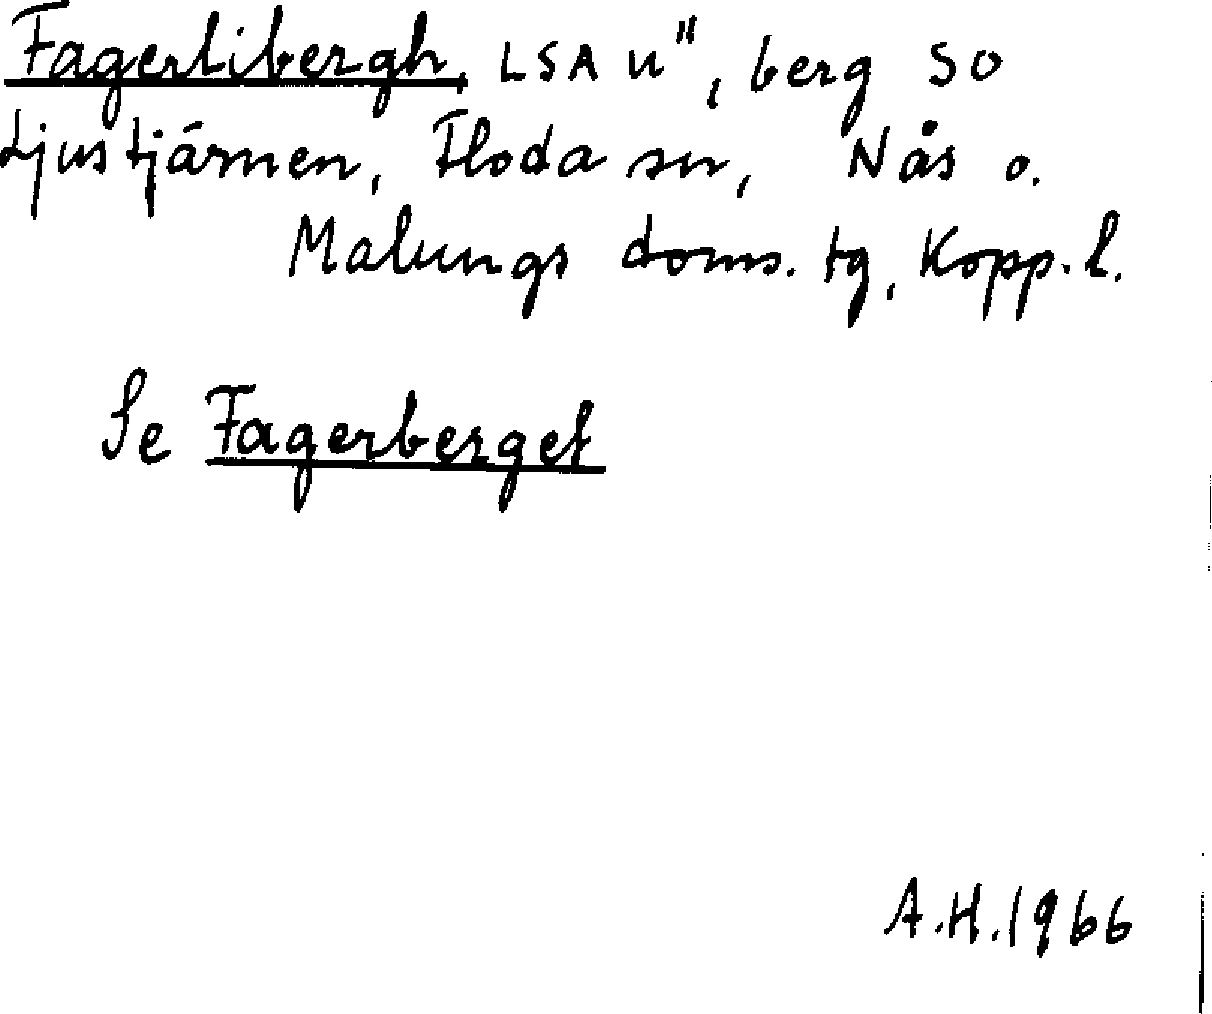 Fagerlibergh, LSA u", berg SO
Ljustjärnen, Floda sn, Nås o.
Malungs doms. tg, Kopp. l.
Se Fagerberget
A.H. 1966